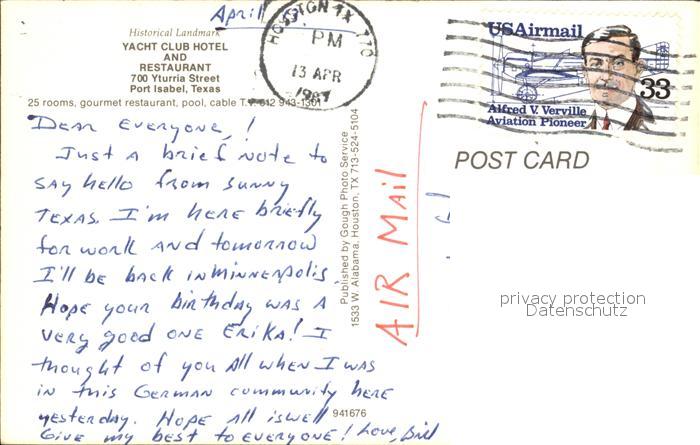 April
Historical Landmark
YACHT CLUB HOTEL
AND
RESTAURANT
700 Yturria Street
Port Isabel, Texas
25 rooms, gourmet restaurant, pool, cable T.V. 512 943-1301
HOUSTON TX 770
PM
13 APR
1987
USAirmail
33
Alfred V. Verville
Aviation Pioneer
POST CARD
Dear Everyone,!
Just a brief note to
say hello from sunny
Texas. I'm here briefly
for work and tomorrow
I'll be back in Minneapolis.
Hope your birthday was a
very good one Erika! I
thought of you all when I was
in this German community here
yesterday. Hope all is well
Give my best to everyone! Love, Bill
941676
Published by Gough Photo Service
1533 W. Alabama, Houston, TX 713-524-5104
AIR MAIL
privacy protection
Datenschutz